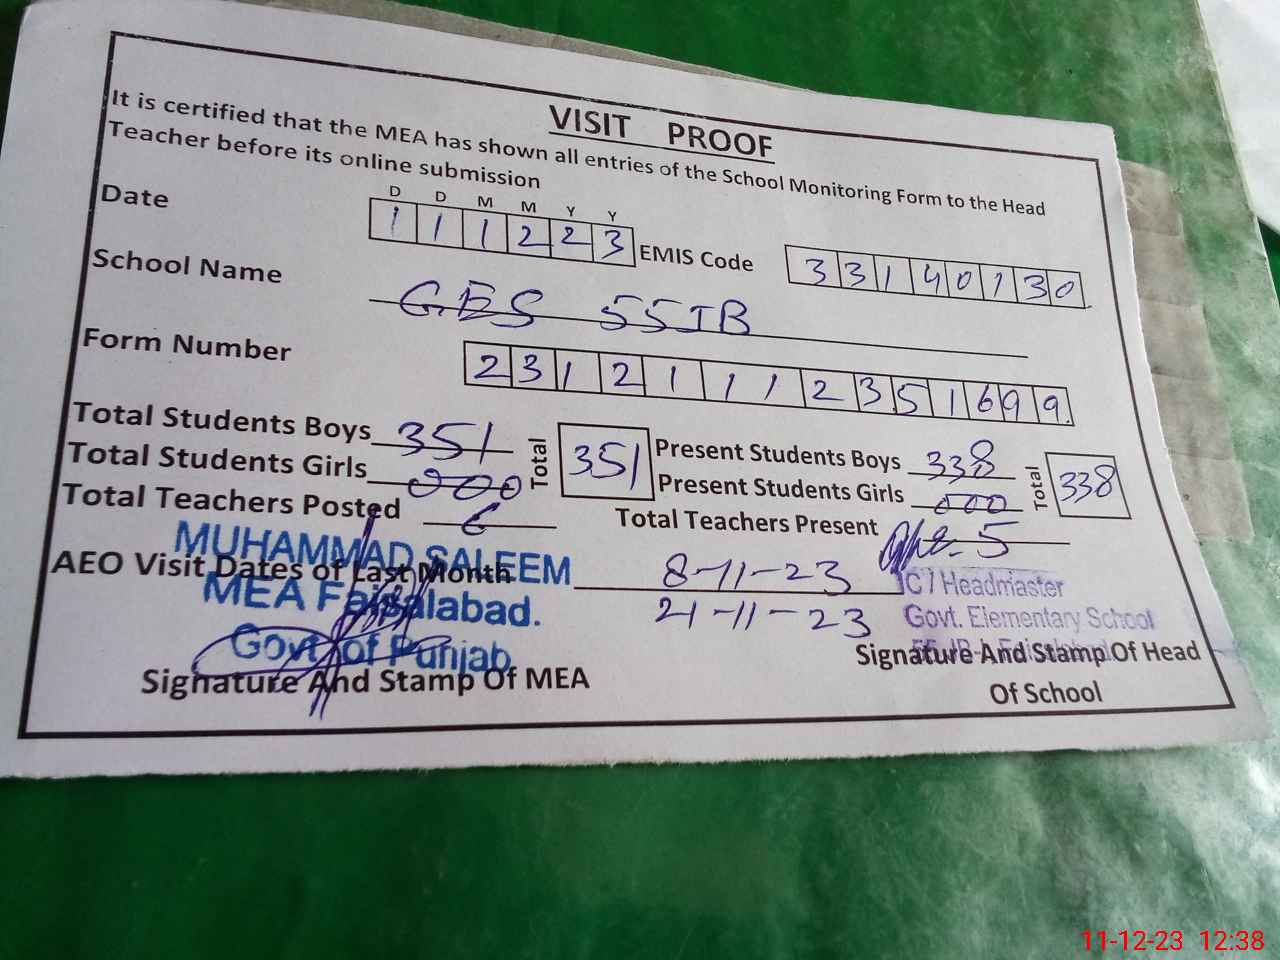 VISIT PROOF
It is certified that the MEA has shown all entries of the School Monitoring Form to the Head
Teacher before its online submission
D D M M Y Y
Date 1 1 1 2 2 3 EMIS Code 3 3 1 4 0 1 3 0
School Name GES 55JB
Form Number 2 3 1 2 1 1 1 2 3 5 1 6 9 9
Total Students Boys 351 Total 351 Present Students Boys 338 Total 338
Total Students Girls 000 Present Students Girls 000
Total Teachers Posted 6 Total Teachers Present 5
MUHAMMAD SALEEM
AEO Visit Dates of Last Month 8-11-23
MEA Faisalabad.
21-11-23
Govt of Punjab
C / Headmaster
Govt. Elementary School
Signature And Stamp Of MEA
Signature And Stamp Of Head
Of School
11-12-23 12:38